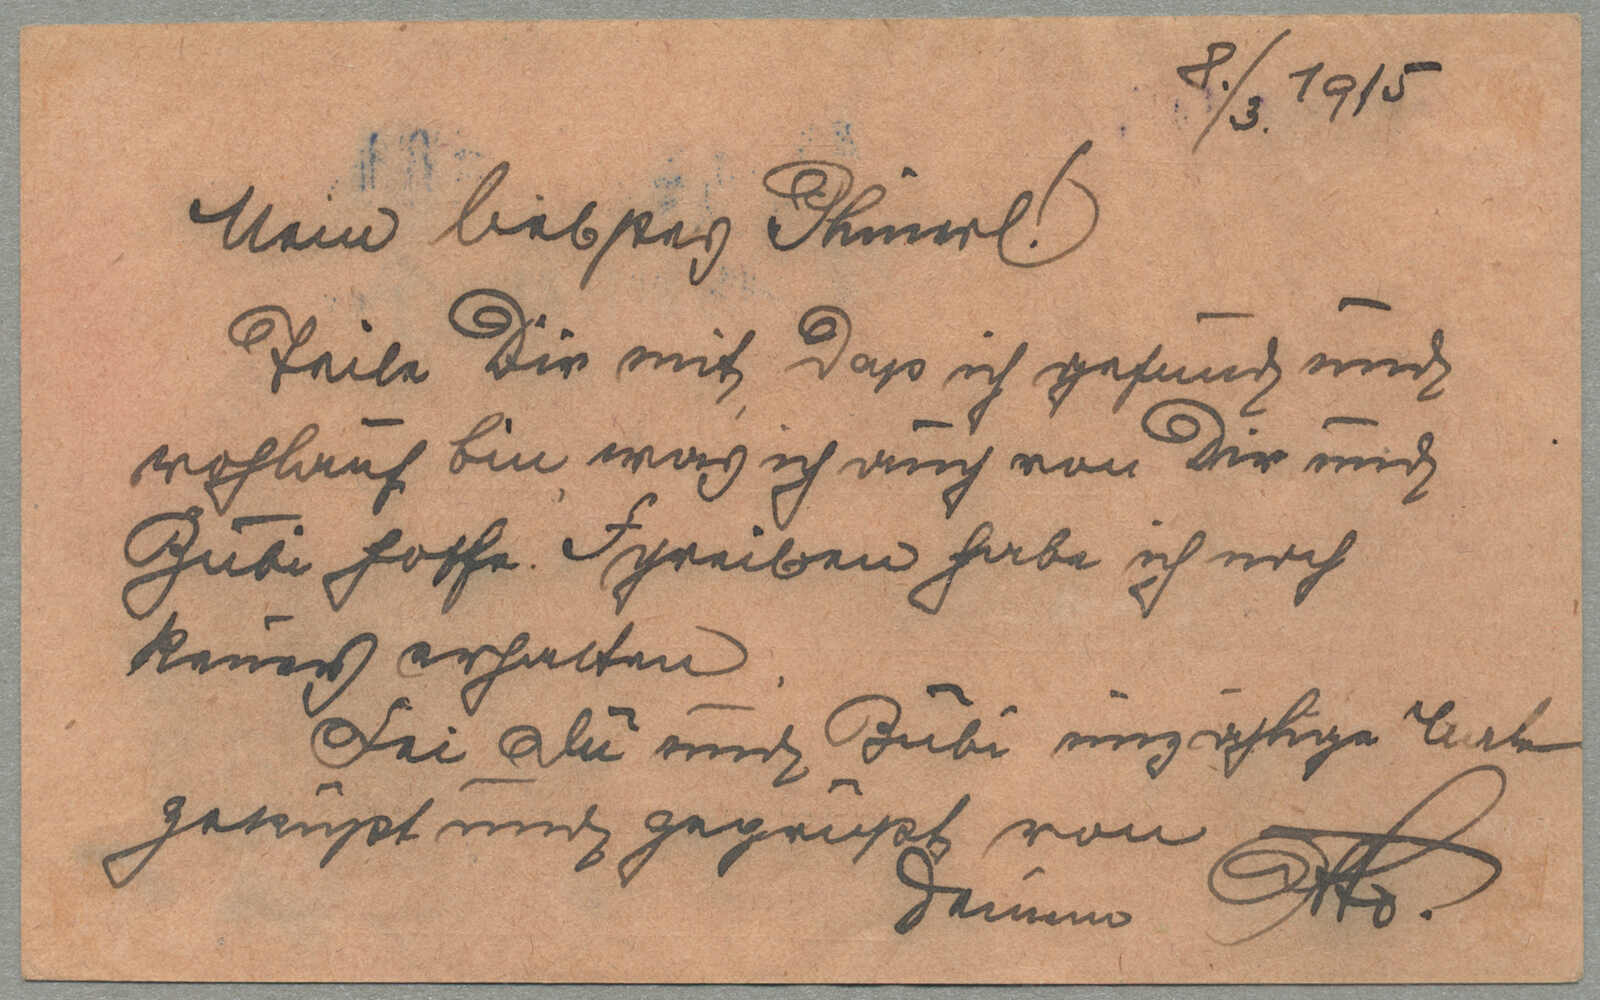 8./3. 1915
Mein liebstes
Teile Dir mit, daß ich gesund und
wohlauf bin, was ich auch von Dir und
Bubi hoffe. Schreiben habe ich noch
keines erhalten.
Sei Du und Bubi unzählige Male
geküßt und gegrüßt von
Deinem Otto.